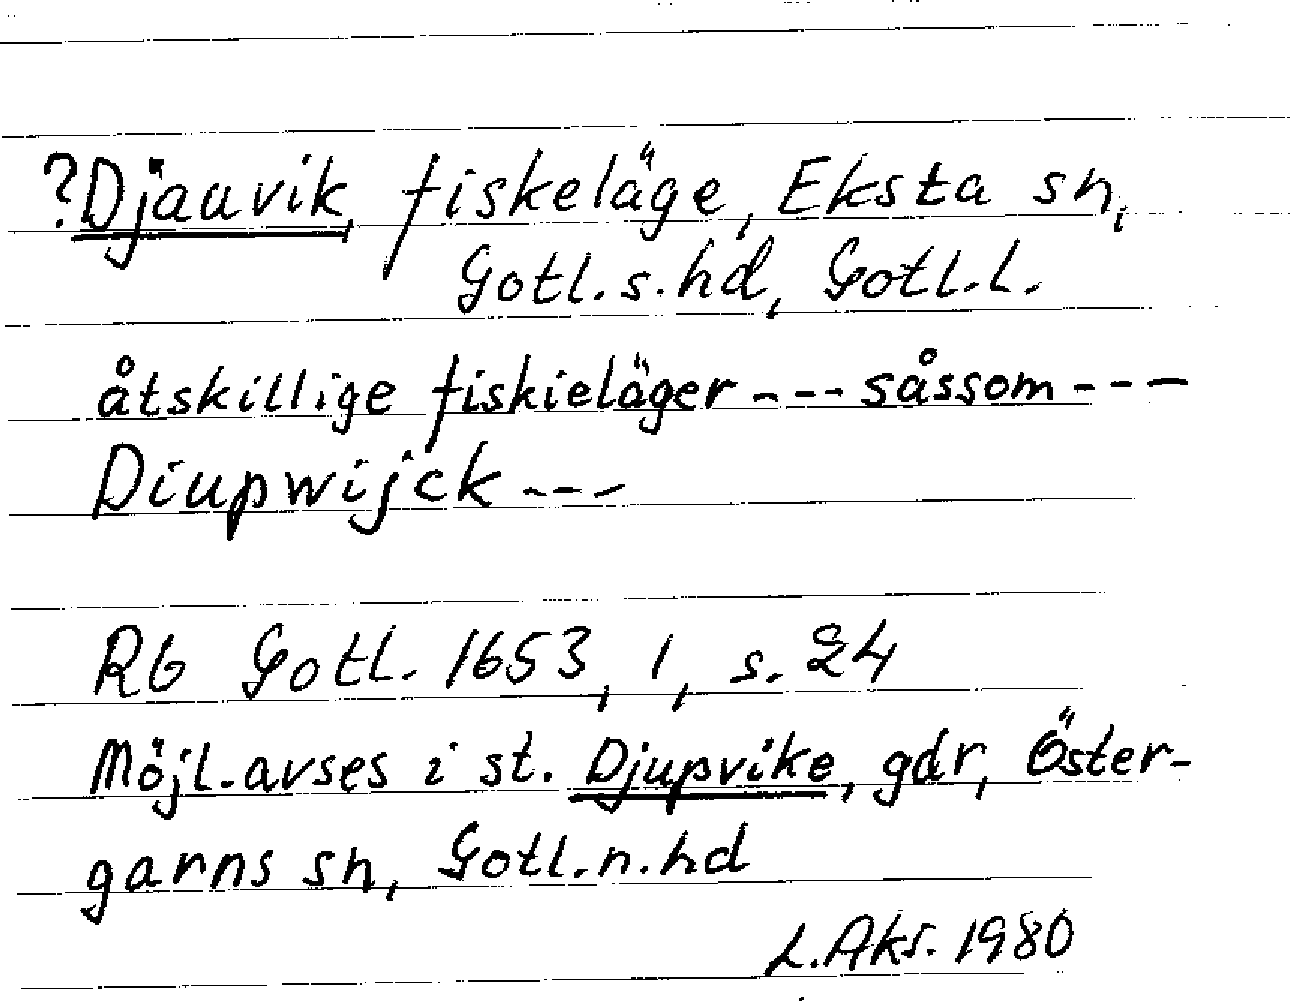 ?Djauvik, fiskeläge, Eksta sn,
Gotl.s.hd, Gotl.l.
åtskillige fiskieläger --- såssom ---
Diupwijck ---
Rb Gotl. 1653, 1, s. 24
Möjl. avses i st. Djupvike, gdr, Öster-
garns sn, Gotl.n.hd
L.Aks. 1980